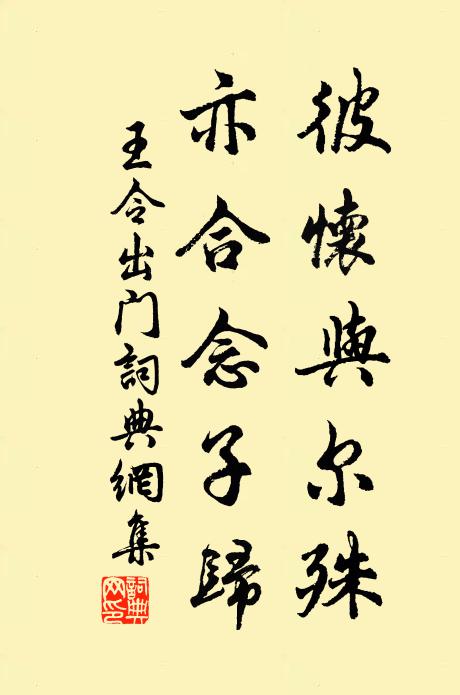 彼懷與尔殊
亦合念子歸
王令出门詞典網集
詞典网印